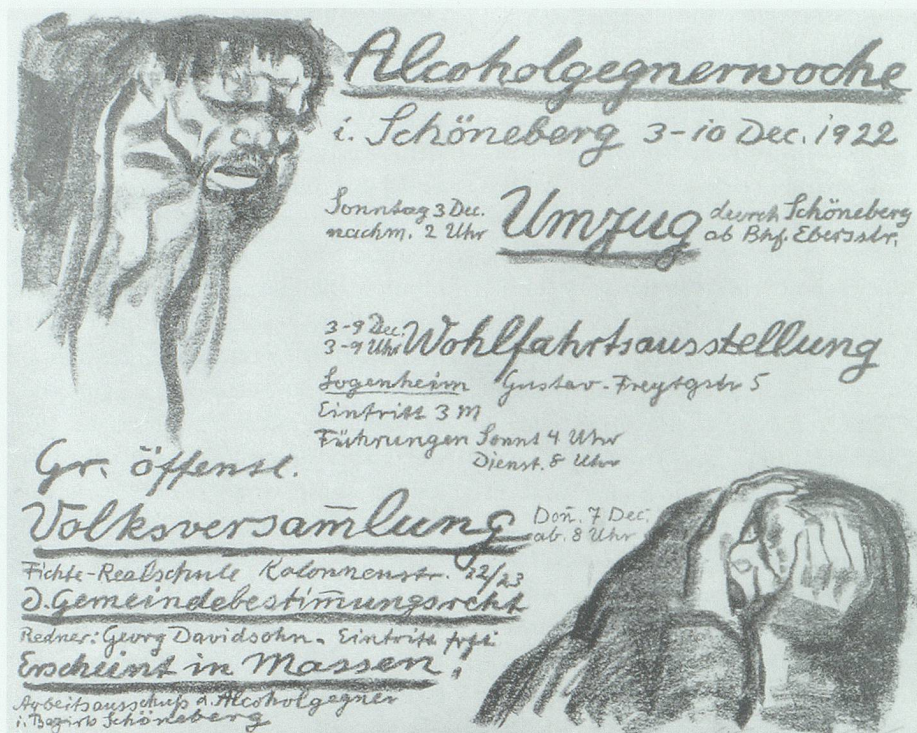 Alcoholgegnerwoche
i. Schöneberg 3-10 Dec. 1922
Sonntag 3 Dec.
nachm. 2 Uhr
Umzug
durch Schöneberg
ab Bhf. Ebersstr.
3-9 Dec.
3-9 Uhr
Wohlfahrtsausstellung
Logenheim Gustav-Freytgstr 5
Eintritt 3 M
Führungen Sonnt 4 Uhr
Dienst. 8 Uhr
Gr. öffentl.
Volksversam̄lung
Don̄. 7 Dec.
ab. 8 Uhr
Fichte-Realschule Kolonnenstr. 22/23
D. Gemeindebestim̄ungsrecht
Redner: Georg Davidsohn - Eintritt frei
Erscheint in Massen!
Arbeitsausschuß d. Alcoholgegner
i. Bezirk Schöneberg